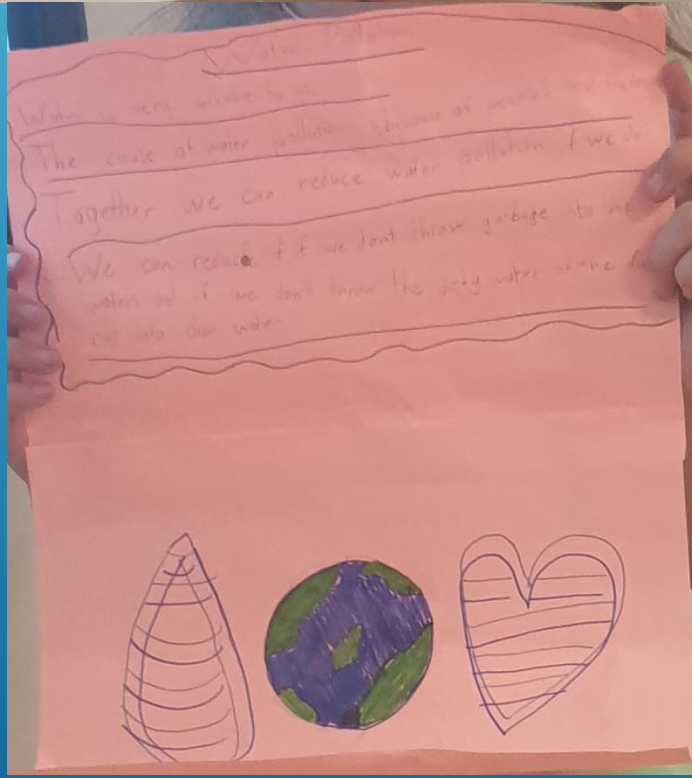 Water Pollution
Water is very valuable to us.
The cause of water pollution is because of and
Together we can reduce water pollution if we do
We can reduce it if we dont throw garbage into the
waters and if we don't throw the dirty water of the
into clear water